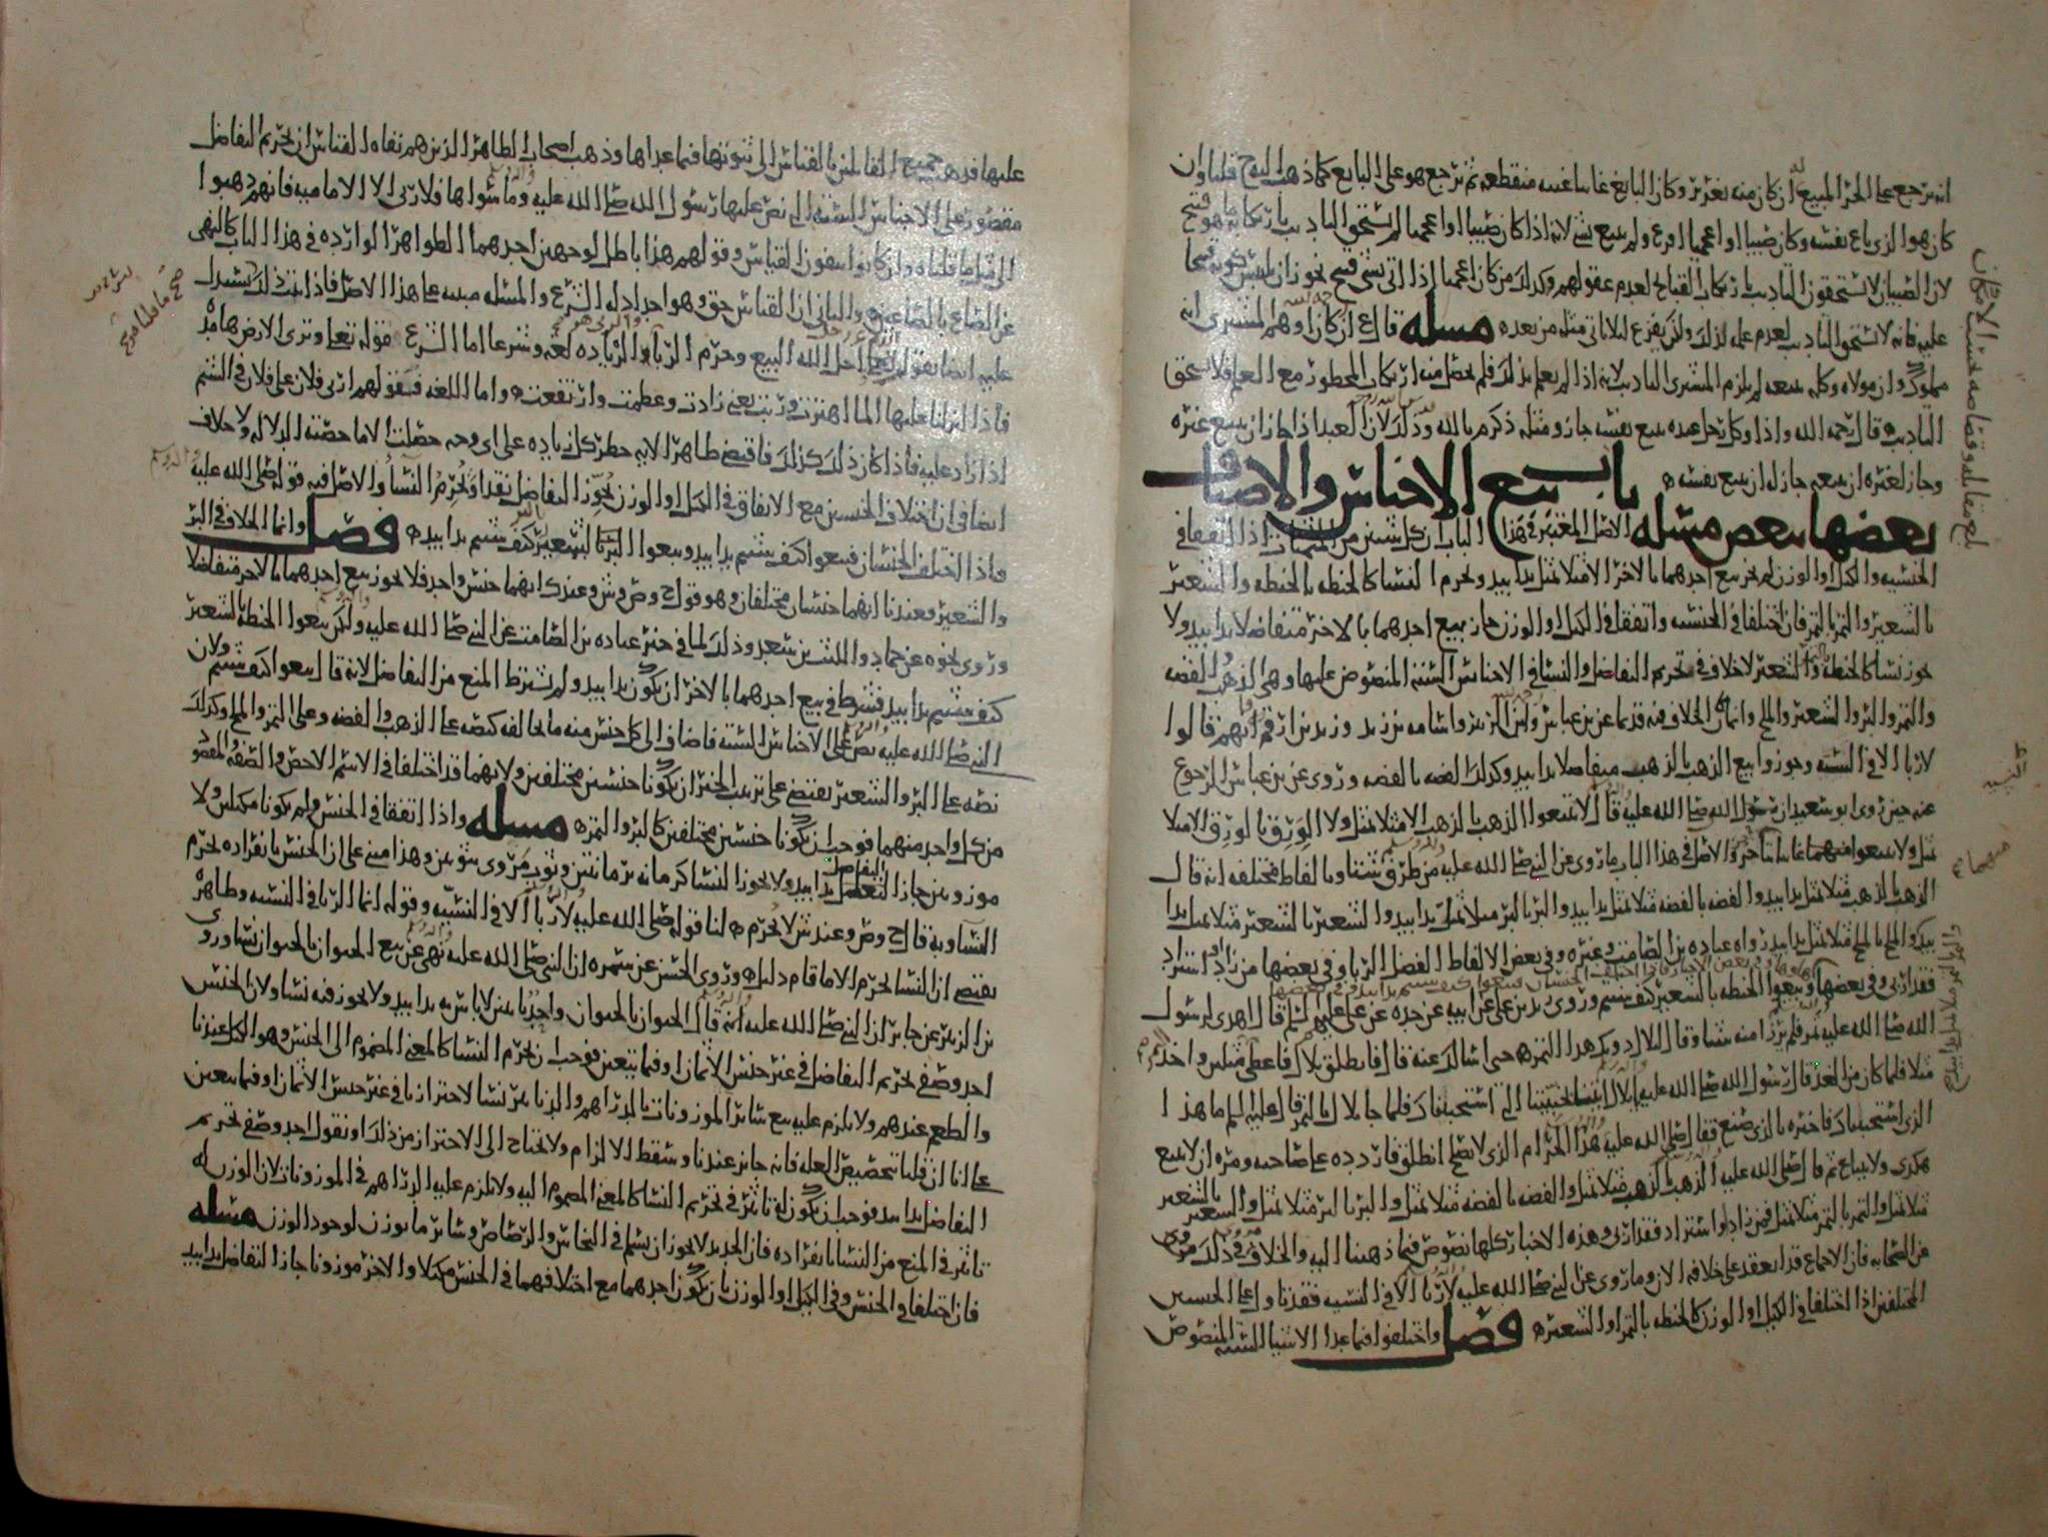 انه يرجع على الحر المبيع ان كان منه تغرير وكان البايع غائبا غيبه منقطعه ثم يرجع هو على البايع كما ذهب اليه ح قلنا وان
كان هو الذي باع نفسه وكان صبيا او اعجميا لم يستحق التاديب بارتكابه ما هو قبيح
لان الصبيان لا يستحقون التاديب بارتكاب القبائح لعدم عقولهم وكذلك من كان اعجميا اذا اتى بشي قبيح نحو ان يلبس
عليه فانه لا يستحق التاديب لعدم علمه لذلك ولكن يفزع لئلا ياتي مثله من بعده مسله قال ع ان كانا وهم المشتري انه
مملوك وان مولاه وكله ببيعه لم يلزم المشتري التاديب لانه اذا لم يعلم بذلك فلم يحصل منه ارتكاب المحظور مع العلم فلا يستحق
التاديب قال رحمه الله واذا وكل رجل عبده ببيع نفسه جاز ومثله ذكره م بالله وذلك لان العبد اذا جاز ان يبيع غيره
وجاز لغيره ان يبيعه جاز له ان يبيع نفسه باب بيع الاجناس والاصناف
بعضها ببعض مسله الاصل المعتبر في هذا الباب ان كل شيئين من المثمنات اذا اتفقا في
الجنسيه والكيل او الوزن لم يجز بيع احدهما بالاخر الا مثلا بمثل يدا بيد ويحرم النسا كالحنطه بالحنطه والشعير
بالشعير والتمر بالتمر فان اختلفا في الجنسيه واتفقا في الكيل او الوزن جاز بيع احدهما بالاخر متفاضلا يدا بيد ولا
يجوز نسا كالحنطه والشعير لا خلاف في تحريم التفاضل والنسا في الاجناس السته المنصوص عليها وهي الذهب والفضه
والتمر والبر والشعير والملح وانما كان الخلاف فيه قديما عن بن عباس وابن الزبير واسامه بن زيد وزيد بن ارقم فانهم قالوا
لا ربا الا في النسيه وجوزوا بيع الذهب بالذهب متفاضلا يدا بيد وكذلك الفضه بالفضه وروي عن بن عباس الرجوع
عنه حين روى ابو سعيد ان رسول الله صلى الله عليه قال لا تبيعوا الذهب بالذهب الا مثلا بمثل ولا الورق بالورق الا مثلا
بمثل ولا تبيعوا منهما غائبا بناجز والاصل في هذا الباب ما روي عن النبي صلى الله عليه من طرق شتى وبالفاظ مختلفه انه قال
الذهب بالذهب مثلا بمثل يدا بيد والفضه بالفضه مثلا بمثل يدا بيد والبر بالبر مثلا بمثل يدا بيد والشعير بالشعير مثلا بمثل يدا
بيد والملح بالملح مثلا بمثل يدا بيد رواه عباده بن الصامت وغيره وفي بعض الالفاظ الفضل الربا وفي بعضها من زاد او استزاد
فقد اربى وفي بعضها وبيعوا الحنطه بالشعير كيف شيتم وروى زيد بن علي عن ابيه عن جده عن علي عليهم السلم قال اهدي لرسول
الله صلى الله عليه تمر فلم يرد منه شيئا وقال لبلال دونك هذا التمر حتى اسالك عنه قال فانطلق بلال فاعطى مثلين واخذ
مثلا فلما كان من الغد قال رسول الله صلى الله عليه يا بلال ايتنا بخبيتنا التي استخبيناك فلما جا بلال بالتمر قال عليه السلم ما هذا
الذي استخبيناك فاخبره بالذي صنع فقال صلى الله عليه هذا الحرام الذي لا يصلح انطلق فاردده على صاحبه ومره ان لا يبيع
هكذى ولا يبتاع ثم قال صلى الله عليه الذهب بالذهب مثلا بمثل والفضه بالفضه مثلا بمثل والبر بالبر مثلا بمثل والشعير بالشعير
مثلا بمثل والتمر بالتمر مثلا بمثل فمن زاد او استزاد فقد اربى وهذه الاخبار كلها نصوص فيما ذهبنا اليه والخلاف في ذلك مروي
عن الصحابه فان الاجماع قد انعقد على خلافه الان وما روي عن النبي صلى الله عليه لا ربا الا في النسيه فقد تاول على الجنسين
المختلفين اذا اختلفا في الكيل او الوزن كالحنطه بالتمر او الشعير فصل واختلفوا فيما عدا الاشيا السته المنصوص
عليها فذهب جميع القائلين بالقياس الى ثبوتها فيما عداها وذهب اصحاب الظاهر الذين هم نفاه القياس ان تحريم التفاضل
مقصور على الاجناس السته التي نص عليها رسول الله صلى الله عليه وما سواها فلا ربى الا الاماميه فانهم ذهبوا
الى مثل ما قلناه وان كانوا ينفون القياس وقولهم هذا باطل لوجهين احدهما الظواهر الوارده في هذا الباب كالنهي
عن الصاع بالصاعين والثاني ان القياس حق وهو احد ادله الشرع والمسله مبنيه على هذا الاصل فاذا ثبت ذلك
عليه ايضا بقوله تعالى احل الله البيع وحرم الربا والربا هو الزياده لغه وشرعا اما الشرع فقوله تعالى وترى الارض هامده
فاذا انزلنا عليها الما اهتزت وربت يعني زادت وعظمت وارتفعت واما اللغه فبقولهم اربى فلان على فلان في الشتم
اذا زاد عليه فاذا كان ذلك كذلك فاقتضى ظاهر الايه حظر كل زياده على اي وجه حصلت الا ما خصته الدلاله ولا خلاف
ايضا في ان اختلاف الجنسين مع الاتفاق في الكيل او الوزن يجوز التفاضل نقدا ويحرم النسا والاصل فيه قوله صلى الله عليه
واذا اختلف الجنسان فبيعوا كيف شيتم يدا بيد وبيعوا البر بالشعير كيف شيتم يدا بيد فصل وانما الخلاف في البر
والشعير وعندنا انهما جنسان مختلفان وهو قول ح وص وش وعند ك انهما جنس واحد فلا يجوز بيع احدهما بالاخر متفاضلا
وروي نحوه عن حماد والليث بن سعد وذلك لما في خبر عباده بن الصامت عن النبي صلى الله عليه ولكن بيعوا الحنطه بالشعير
كيف شيتم يدا بيد فشرط في بيع احدهما بالاخر ان يكون يدا بيد ولم يشترط المنع من التفاضل لانه قال بيعوا كيف شيتم ولان
النبي صلى الله عليه نص على الاجناس السته فاضاف الى كل جنس منه ما يخالفه كنصه على الذهب والفضه وعلى التمر والملح وكذلك
نصه على البر والشعير يقتضي على ترتيب الخبر ان يكونا جنسين مختلفين ولانهما قد اختلفا في الاسم الاخص والصفه المقصوده
من كل واحد منهما فوجب ان يكونا جنسين مختلفين كالبر والتمر مسله واذا اتفقا في الجنس ولم يكونا مكيلين ولا
موزونين جاز التفاضل يدا بيد ولا يجوز النسا كرمانه برمانتين وثوب مروي بثوبين وهذا مبني على ان الجنس بانفراده يحرم
النسا وبه قال ح وص وعند ش لا يحرم لنا قوله صلى الله عليه لا ربا الا في النسيه وقوله انما الربا في النسيه وظاهره
يقتضي ان النسا يحرم الا ما قام دليله وروى الحسن عن سمره ان النبي صلى الله عليه نهى عن بيع الحيوان بالحيوان نسا وروى
بن الزبير عن جابر ان النبي صلى الله عليه انه قال الحيوان بالحيوان واحد باثنين لا باس به يدا بيد ولا يجوز فيه نسا ولان الجنس
احد وصفي تحريم التفاضل في غير جنس الاثمان وفيما يتعين فوجب ان يحرم النسا كالمعنى المضموم الى الجنس وهو الكيل عندنا
والطعم عندهم ولا يلزم عليه بيع سائر الموزونات بالدراهم والدنانير نسا لاحترازنا في غير جنس الاثمان وفيما يتعين
على انا ان قلنا بتخصيص العله فانه جائز عندنا وسقط الالزام ولا نحتاج الى الاحتراز من ذلك او نقول احد وصفي تحريم
التفاضل يدا بيد فوجب ان يكون له تاثير في تحريم النسا كالمعنى المضموم اليه ولا يلزم عليه الدراهم في الموزونات لان الوزن له
تاثير في المنع من النسا بانفراده فان الحديد لا يجوز ان يسلم في النحاس والرصاص وسائر ما يوزن لوجود الوزن مسله
فان اختلفا في الجنس وفي الكيل او الوزن بان يكون احدهما مع اختلافهما في الجنس مكيلا والاخر موزونا جاز التفاضل يدا بيد